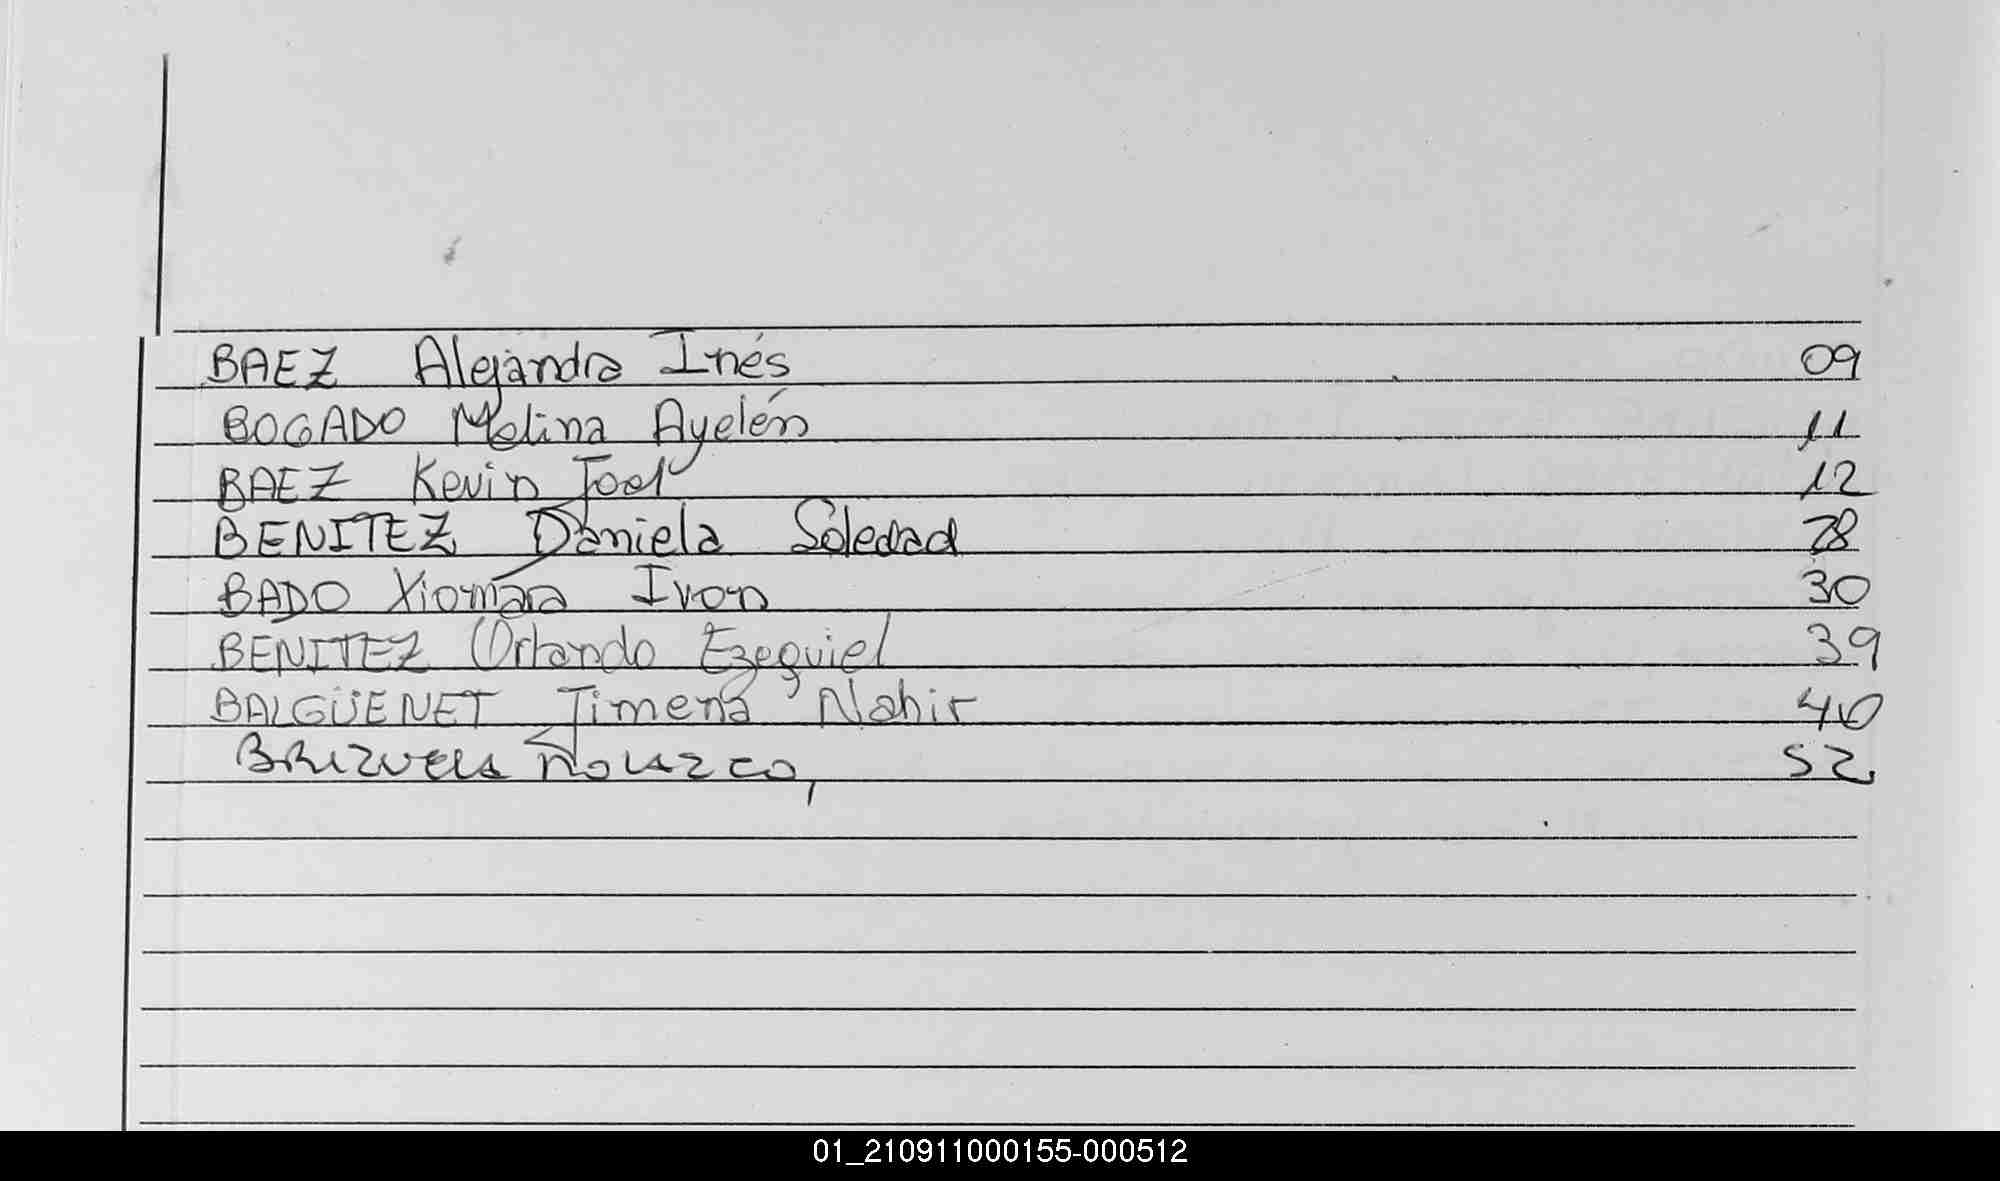 BAEZ Alejandra Inés 09
BOGADO Melina Ayelén 11
BAEZ Kevin Joel 12
BENITEZ Daniela Soledad 28
BADO Xiomara Ivon 30
BENITEZ Orlando Ezequiel 39
BALGÜENET Jimena Nahir 40
BRIZUELA 52
01_210911000155-000512